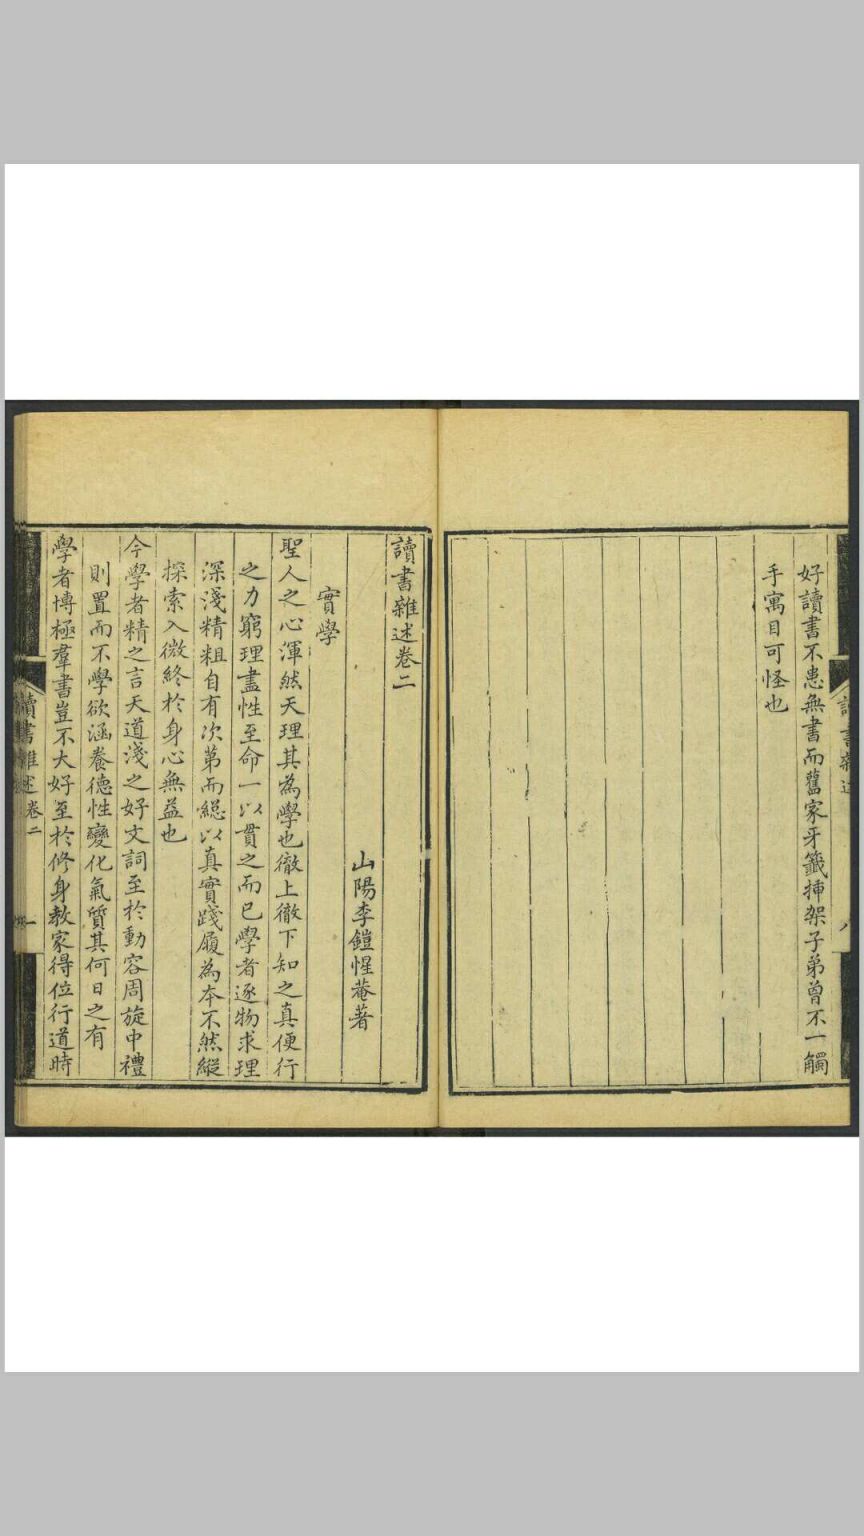 好讀書不患無書而舊家牙籤揷架子弟曾不一觸
手寓目可怪也
讀書雜述卷二
山陽李鎧惺菴著
實學
聖人之心渾然天理其為學也徹上徹下知之真便行
之力窮理盡性至命一以貫之而已學者逐物求理
深淺精粗自有次第而緫以真實踐履為本不然縱
探索入微終於身心無益也
今學者精之言天道淺之好文詞至於動容周旋中禮
則置而不學欲涵養德性變化氣質其何日之有
學者博極羣書豈不大好至於修身教家得位行道時
讀書雜述卷二
一